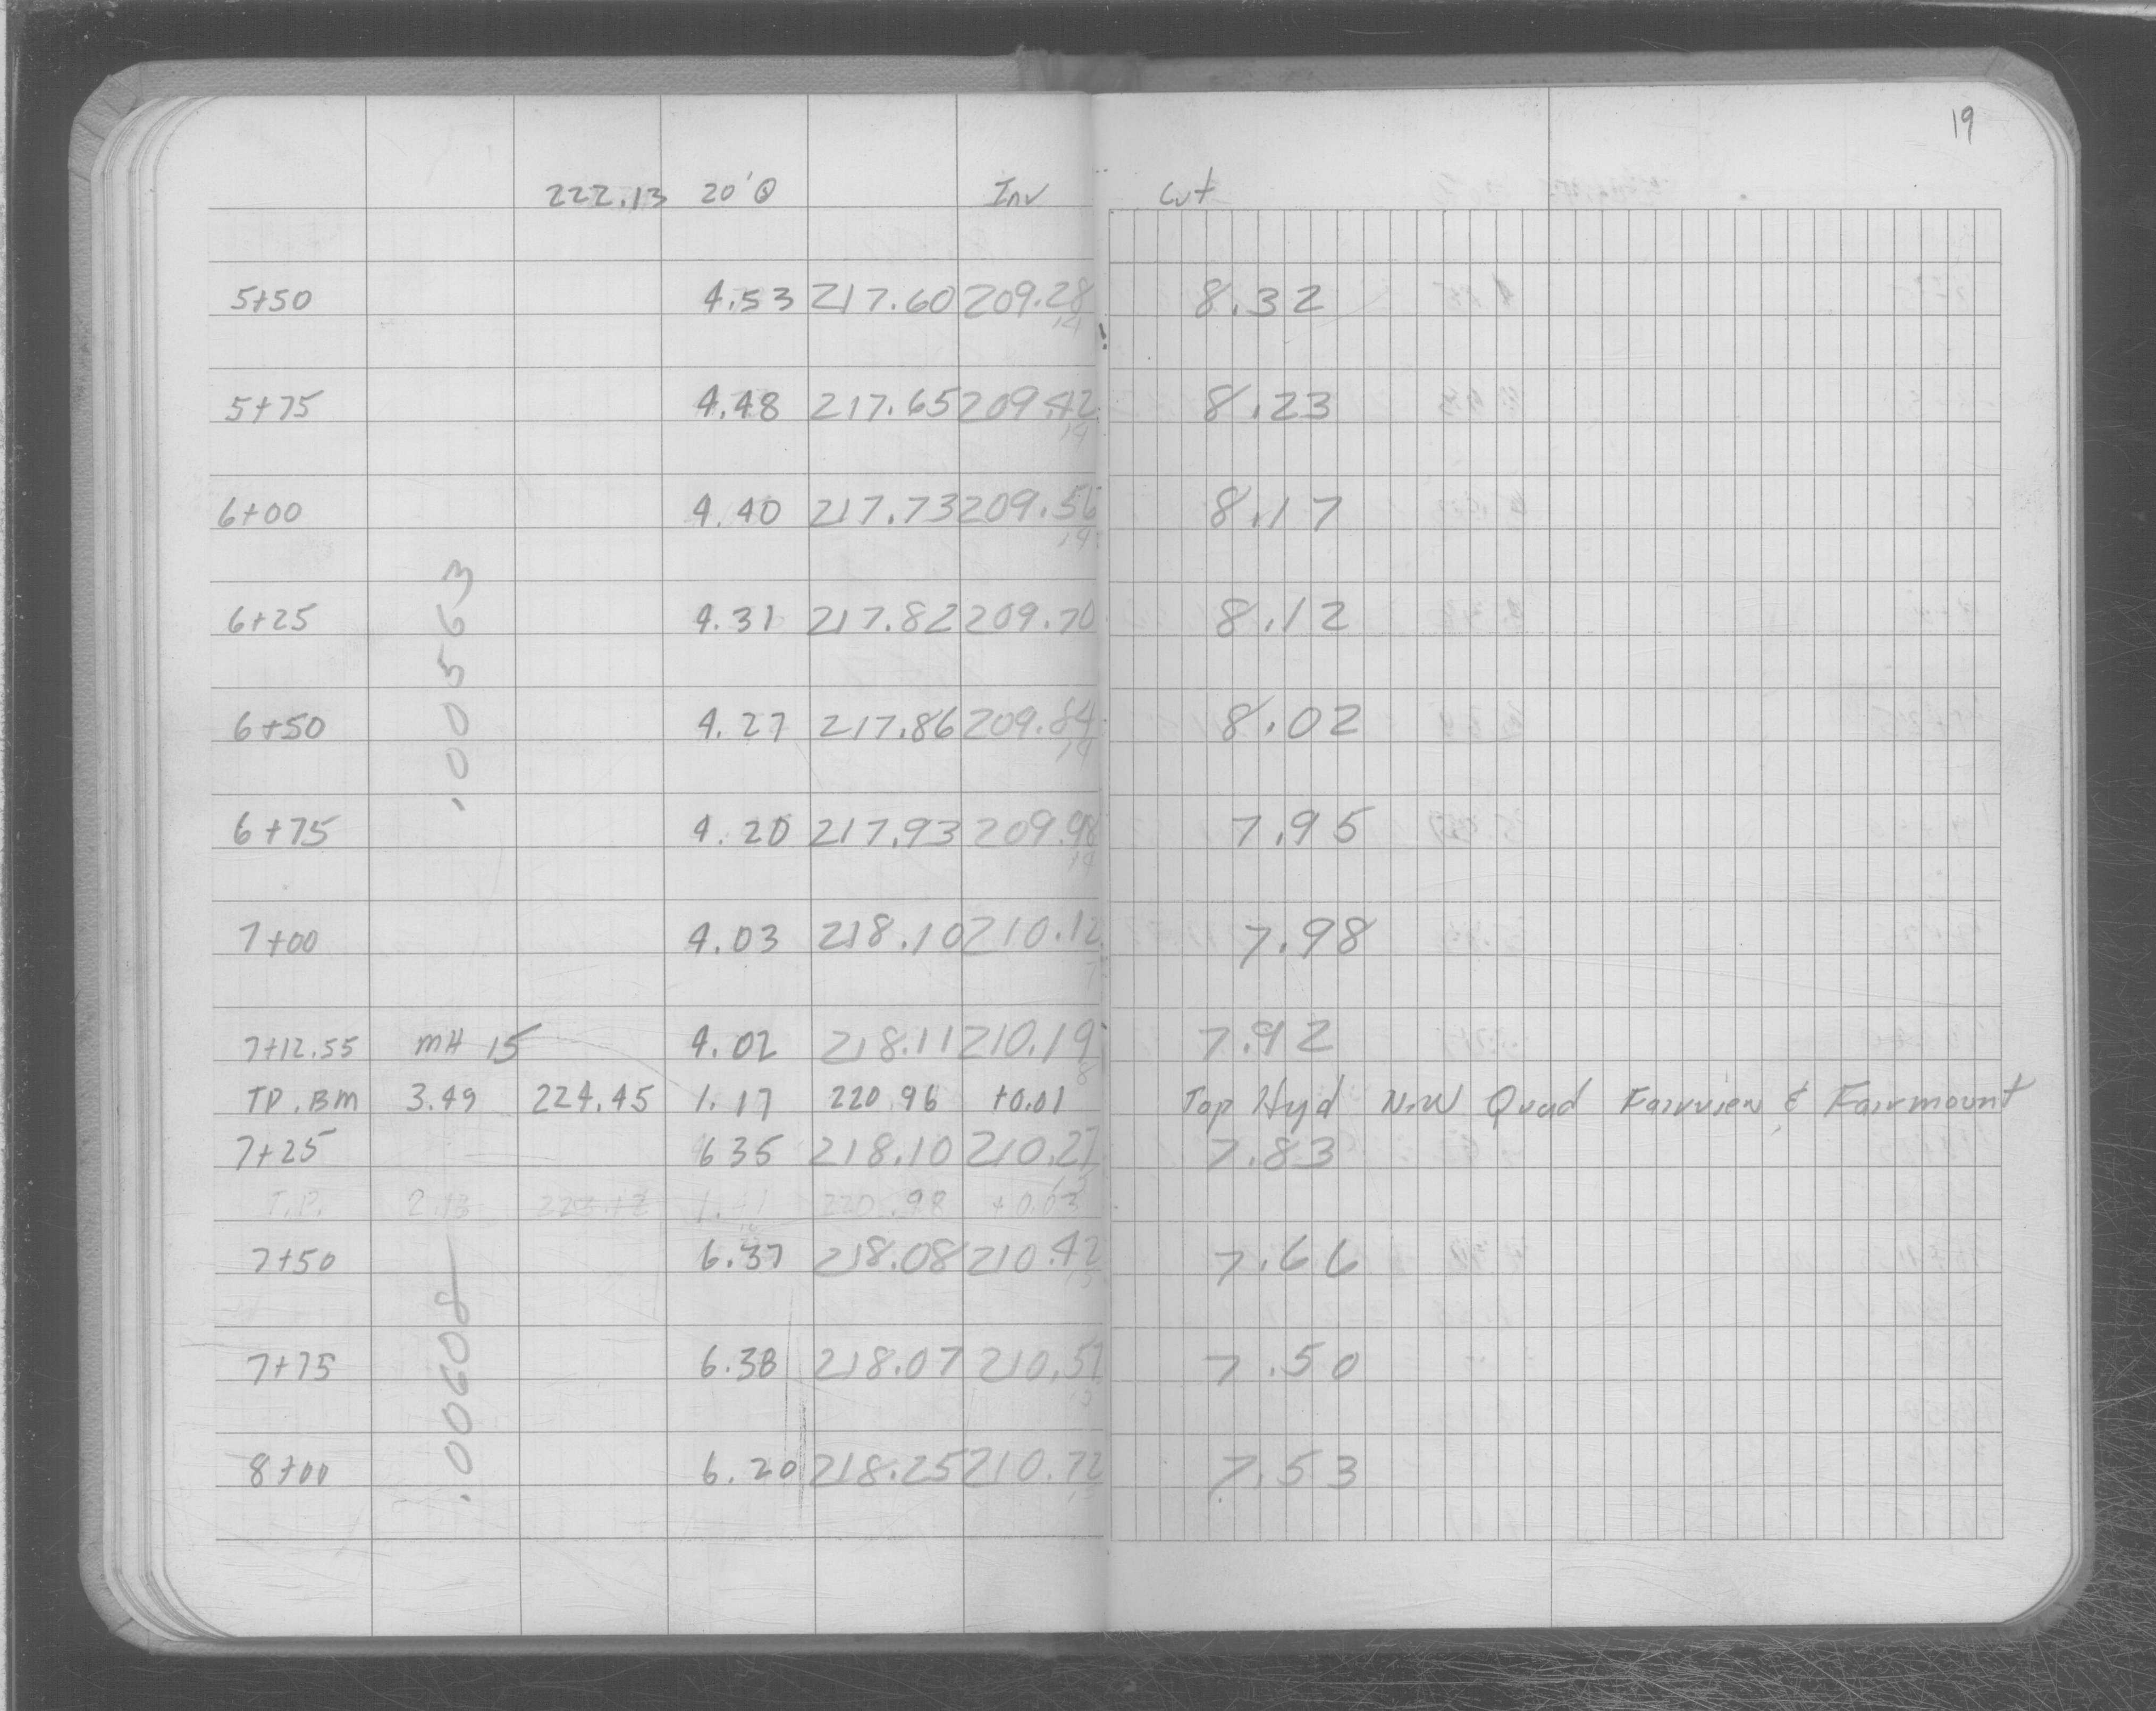 19
222.13 20' Inv Cut
5+50 4.53 217.60 209.28 8.32
.14
5+75 4.48 217.65 209.42 8.23
.14
6+00 4.40 217.73 209.56 8.17
.14
6+25 4.31 217.82 209.70 8.12
.00563
6+50 4.27 217.86 209.84 8.02
.14
6+75 4.20 217.93 209.98 7.95
.14
7+00 4.03 218.10 210.12 7.98
7
7+12.55 MH 15 4.02 218.11 210.19 7.92
8
TP.BM 3.49 224.45 1.17 220.96 +0.01 Top Hyd N.W Quad Fairview & Fairmount
7+25 6.35 218.10 210.27 7.83
T.P. 2.13 220.98 +0.03
7+50 6.37 218.08 210.42 7.66
.00608
7+75 6.38 218.07 210.57 7.50
8+00 6.20 218.25 210.72 7.53